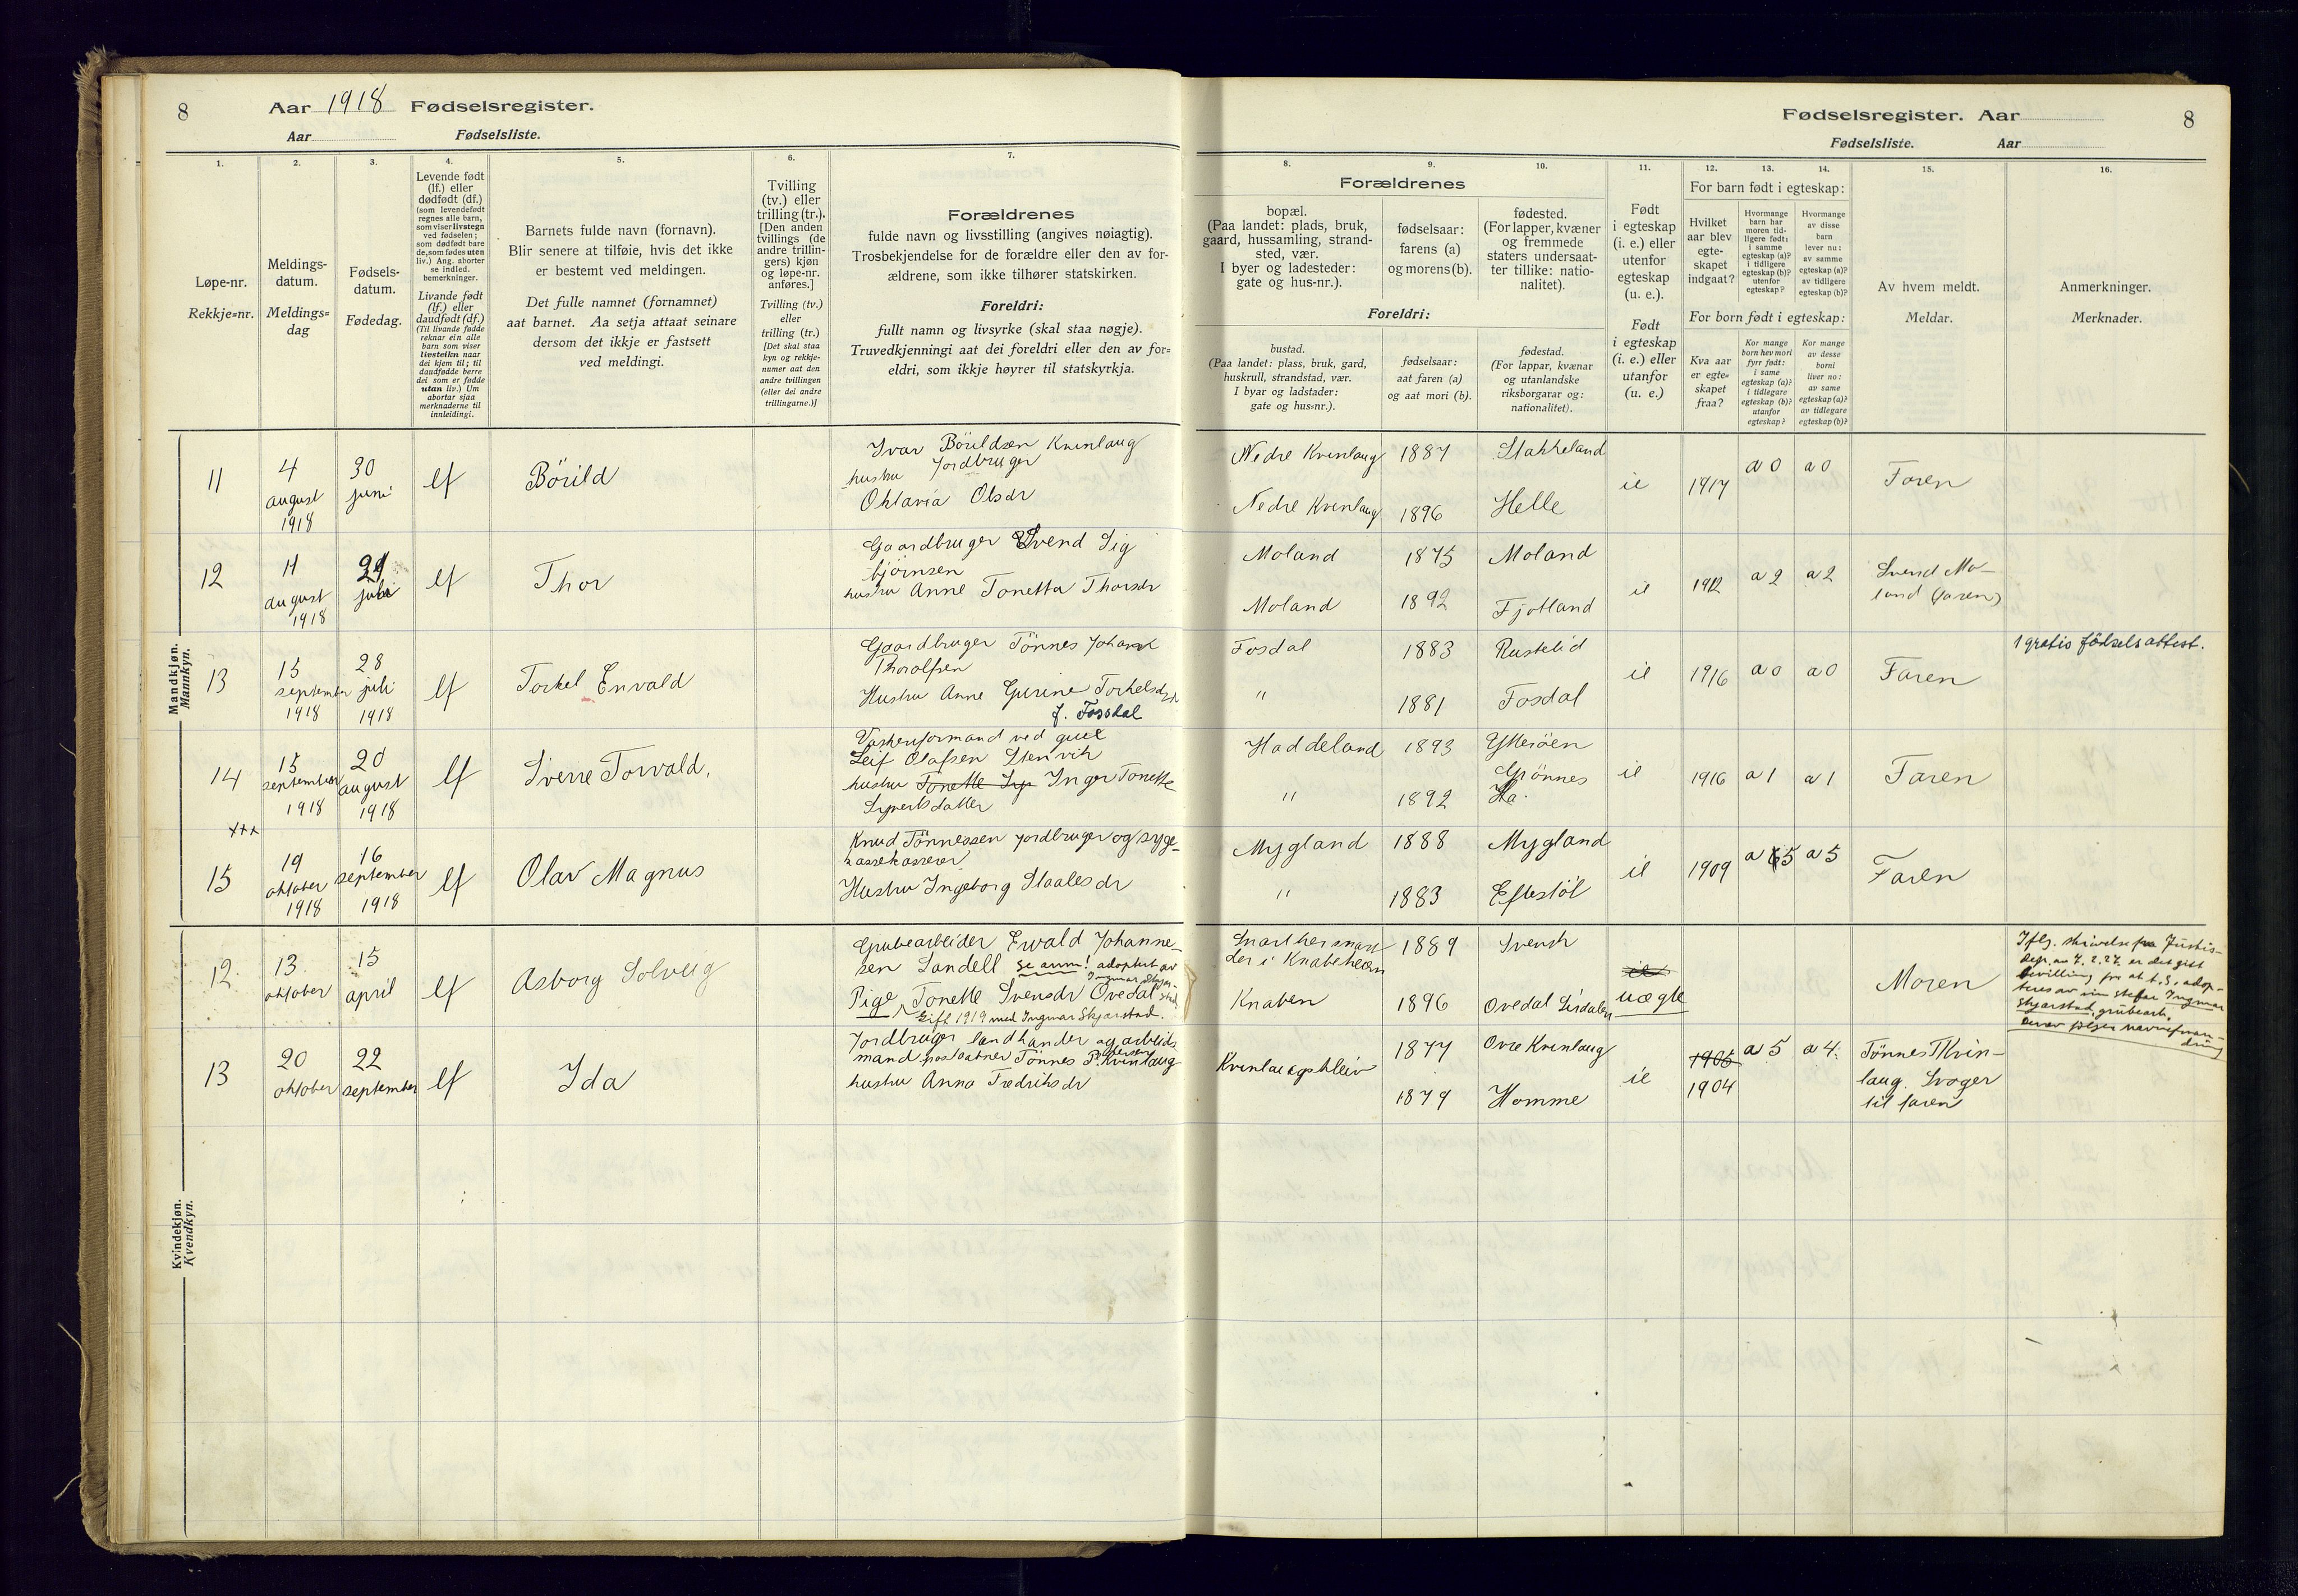 8
Aar 1918 Fødselsregister.
Aar Fødselsliste.
Fødselsregister. Aar
8
Fødselsliste. Aar
1.
Løpe-nr.
Rekkje=nr.
2.
Meldings-
datum.
Meldings=
dag
3.
Fødsels-
datum.
Fødedag.
4.
Levende født
(lf.) eller
dødfødt (df.)
(som levendefødt
regnes alle barn,
som viser livstegn
ved fødselen;
som dødfødt bare
de, som fødes uten
liv.) Ang. aborter
se indled.
bemerkninger.
Livande født
(lf.) eller
daudfødt (df.)
(Til livande fødde
reknar ein alle
barn som viser
livsteikn naar
dei kjem til; til
daudfødde berre
dei som er fødde
utan liv.) Um
abortar sjaa
merknaderne til
innleidingi.
5.
Barnets fulde navn (fornavn).
Blir senere at tilføie, hvis det ikke
er bestemt ved meldingen.
Det fulle namnet (fornamnet)
aat barnet. Aa setja attaat seinare
dersom det ikkje er fastsett
ved meldingi.
6.
Tvilling
(tv.) eller
trilling (tr.).
[Den anden
tvillings (de
andre trillin-
gers) kjøn
og løpe-nr.
anføres.]
Tvilling (tv.)
eller
trilling (tr.)
[Det skal staa
kyn og rekkje-
numer aat den
andre tvillingen
(eller dei andre
trillingarne.)]
7.
Forældrenes
fulde navn og livsstilling (angives nøiagtig).
Trosbekjendelse for de forældre eller den av for-
ældrene, som ikke tilhører statskirken.
Foreldri:
fullt namn og livsyrke (skal staa nøgje).
Truvedkjenningi aat dei foreldri eller den av for=
eldri, som ikkje høyrer til statskyrkja.
8.
Forældrenes
bopæl.
(Paa landet: plads, bruk,
gaard, hussamling, strand-
sted, vær.
I byer og ladesteder:
gate og hus-nr.).
Foreldri:
bustad.
(Paa landet: plass, bruk, gard,
huskrull, strandstad, vær.
I byar og ladstader:
gate og hus=nr.).
9.
fødselsaar:
farens (a)
og morens (b).
fødselsaar:
aat faren (a)
og aat mori (b).
10.
fødested.
(For lapper, kvæner
og fremmede
staters undersaat-
ter tillike: natio-
nalitet).
fødestad.
(For lappar, kvænar
og utanlandske
riksborgarar og:
nationalitet).
11.
Født
i egteskap
(i. e.) eller
utenfor
egteskap
(u. e.).
Født
i egteskap
(i. e.) eller
utanfor
(u. e.)
12. 13. 14.
For barn født i egteskap:
Hvilket
aar blev
egte-
skapet
indgaat?
Hvormange
barn har
moren tid-
ligere født:
i samme
egteskap (a)?
i tidligere
egteskap (b)?
utenfor
egteskap?
Hvormange
av disse
barn
lever nu:
av samme
egteskap (a)?
av tidligere
egteskap (b)?
For born født i egteskap:
Kva aar
er egte=
skapet
fraa?
Kor mange
born hev mori
fyrr født:
i same
egteskap (a)?
i tidlegare
egteskap (b)?
utanfor
egteskap?
Kor mange
av desse
borni
liver no:
av same
egteskap (a)?
av tidlegare
egteskap (b)?
15.
Av hvem meldt.
Meldar.
16.
Anmerkninger.
Merknader.
Mandkjøn.
Mannkyn.
11
4
august
1918
30
juni
lf
Börild
Ivar Börildsen Kvinlaug
Jordbruger
hustru
Oktavia Olsdr
Nedre Kvinlaug 1887 Stakkeland
Nedre Kvinlaug 1896 Helle
ie 1917 a 0 a 0
Faren
12
11
august
1918
29
juli
lf
Thor
Gaardbruger Svend Sig
björnsen
hustru Anne Tonetta Thorsdr
Moland 1875 Moland
Moland 1892 Fjotland
ie 1912 a 2 a 2
Svend Mo-
land (faren)
13
15
september
1918
28
juli
1918
lf
Torkel Envald
Gaardbruger Tönnes Johan
Thorolfsen
Hustru Anne Gurine Torkelsdr
f. Fossdal
Fosdal 1883 Rustelid
" 1881 Fosdal
ie 1916 a 0 a 0
Faren
1 gratis födselsattest.
14
15
september
1918
20
august
1918
lf
Sverre Torvald.
Vaskeriformand ved
Leif Olafsen Stenvik
hustru Tonette Inger Tonette
Sigvertsdatter
Haddeland 1893 Ytterøen
" 1892 Grönnes
Ha.
ie 1916 a 1 a 1
Faren
+++
15
19
oktober
1918
16
september
1918
lf
Olav Magnus
Knud Tönnessen jordbruger og syge-
kassekasserer
Hustru Ingeborg Staalesdr
Mygland 1888 Mygland
" 1883 Eftestöl
ie 1909 a 5 a 5
Faren
Kvindekjøn.
Kvendkyn.
12
13
oktober
15
april
lf
Asborg Solveig
Grubearbeider Ewald Johanne-
sen Sandell se anm! adoptert av
Ingvar Skjar-
stad
Pige Tonette Svensdr Ovedal
Gift 1919 med Ingvar Skjarstad.
1889 Svensk
Knaben 1896 Ovedal Sirdalen
ie
uægte
Moren
Iflg. skrivelse fra Justis-
dep. av 7.2.27. er det gitt
bevilling for at b. S. adop-
teres av sin stefar Ingvar
Skjarstad, grubearb.
Derav følger navneforan-
dring
13
20
oktober
22
september
lf
Ida
Jordbruger landhandler og arbeids
mand. postaabner Tönnes P. Kvinlaug
Pedersen
hustru Anna Fredriksdr
Kvinlaugskleiv 1877 Övre Kvinlaug
1879 Homme
ie 1905
1904
a 5 a 4.
Tönnes T Kvin-
laug. Svoger
til faren